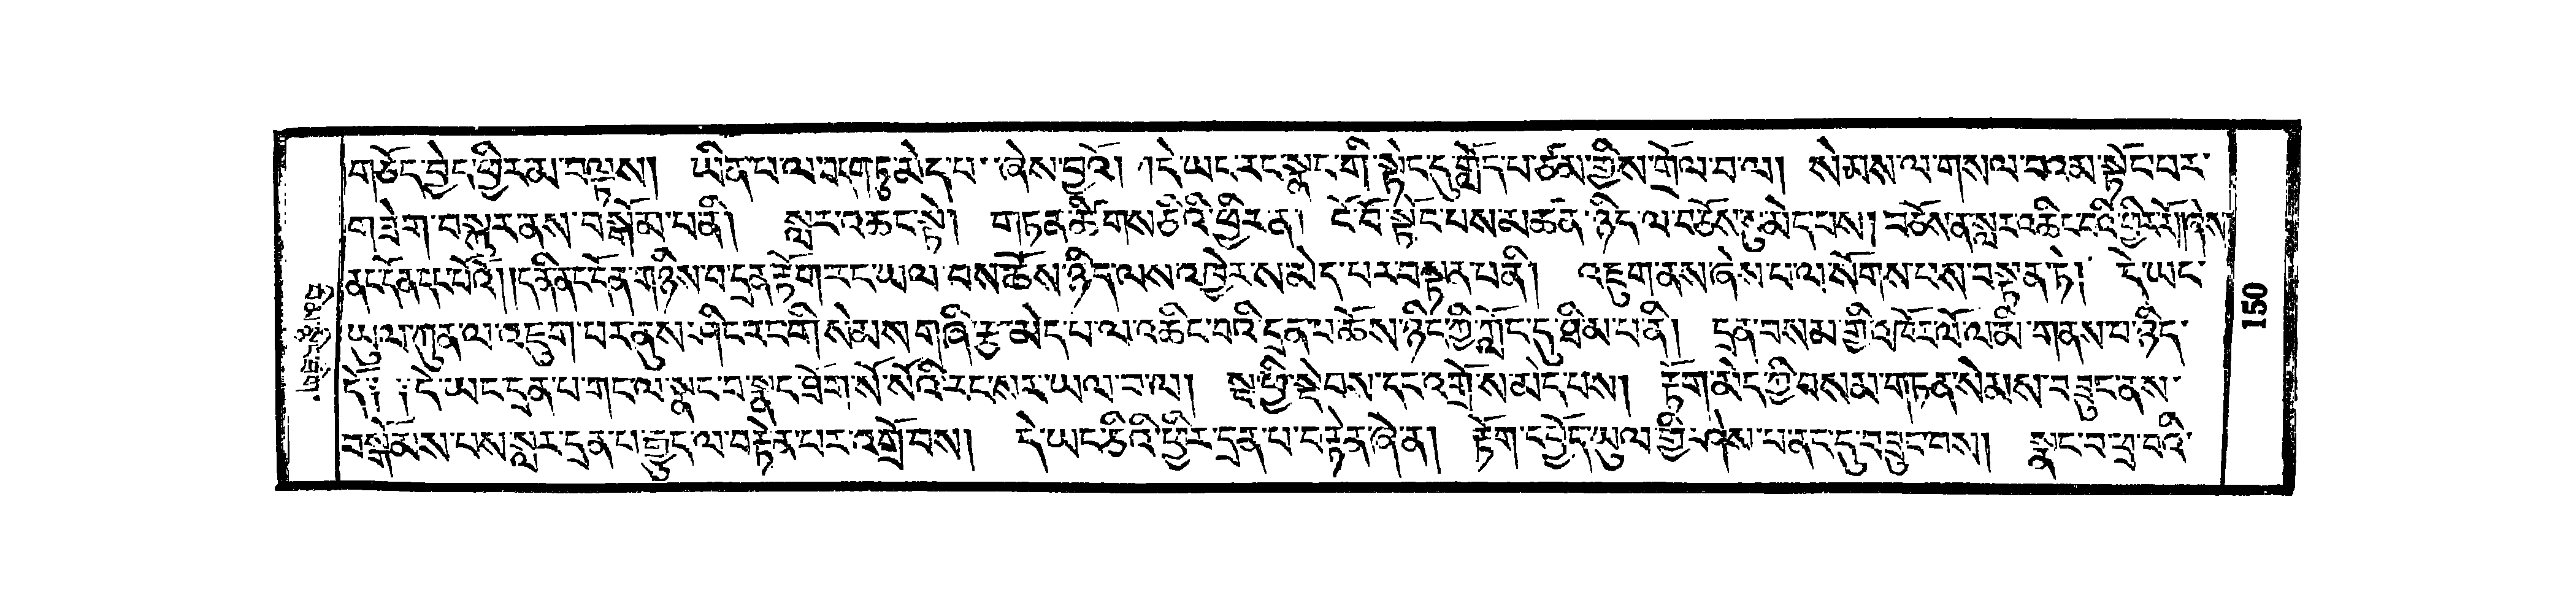 གཅོད་བྱེད་ཕྱིར་མ་བལྟས། ཡིན་པ་ལ་བརྟག་ཏུ་མེད་པ་ཞེས་བྱའོ། །དེ་ཡང་རང་སྣང་གི་སྟེང་དུ་གློད་པ་ཙམ་གྱིས་གྲོལ་བ་ལ། སེམས་ལ་གསལ་བའམ་སྟོང་པར་
གཟེག་བསྐུར་ནས་བསྒོམ་པ་ནི། སླར་འཆང་སྟེ། གཏན་ཚིགས་ཅིའི་ཕྱིར་ན། ངོ་བོ་སྟོང་པས་མཚན་ཉིད་ལ་བཅོས་སུ་མེད་པས། བཅོས་ན་སླར་འཆིང་བའི་ཕྱིར་རོ། །ཞེས་
ནང་དོན་དང་པོའོ། །ད་ནི་ནང་དོན་གཉིས་པ་དྲན་རྟོག་རང་ཡལ་བས་ཆོས་ཉིད་ལས་འཁྱེར་ས་མེད་པར་བསྟར་པ་ནི། འཇུག་ནས་ཞེས་པ་ལ་སོགས་པས་བསྟན་ཏེ། དེ་ཡང་
ཡུལ་ཀུན་ལ་འཇུག་པར་ནུས་ཤིང་རང་གི་སེམས་གཞི་རྩ་མེད་པ་ལ་འཆིང་བའི་དྲན་པ་ཆོས་ཉིད་ཀྱི་ཀློང་དུ་ཐིམ་པ་ནི། དྲན་བསམ་གྱི་འཁོར་ལོ་ལ་མི་གནས་པ་ཉིད་
དེ། །དེ་ཡང་དྲན་པ་གང་ལ་སྣང་བ་སྣང་ཤེག་སོ་སོའི་རང་སར་ཡལ་བ་ལ། སྔ་ཕྱི་སྡེབས་དང་འགྲོ་ས་མེད་པས། རྟོག་མེད་ཀྱི་བསམ་གཏན་སེམས་བཟུང་ནས་
བསྒོམས་པས་སླར་དྲན་པ་རྒྱུད་ལ་བརྟེན་པར་འགྲོ་བས། དེ་ཡང་ཅིའི་ཕྱིར་དྲན་པ་བརྟེན་ཞེ་ན། རྟོག་དཔྱོད་ཡུལ་གྱི་ཤེས་པ་ནང་དུ་བཟུང་བས། སྣང་བ་ཕྲ་བའི་
150